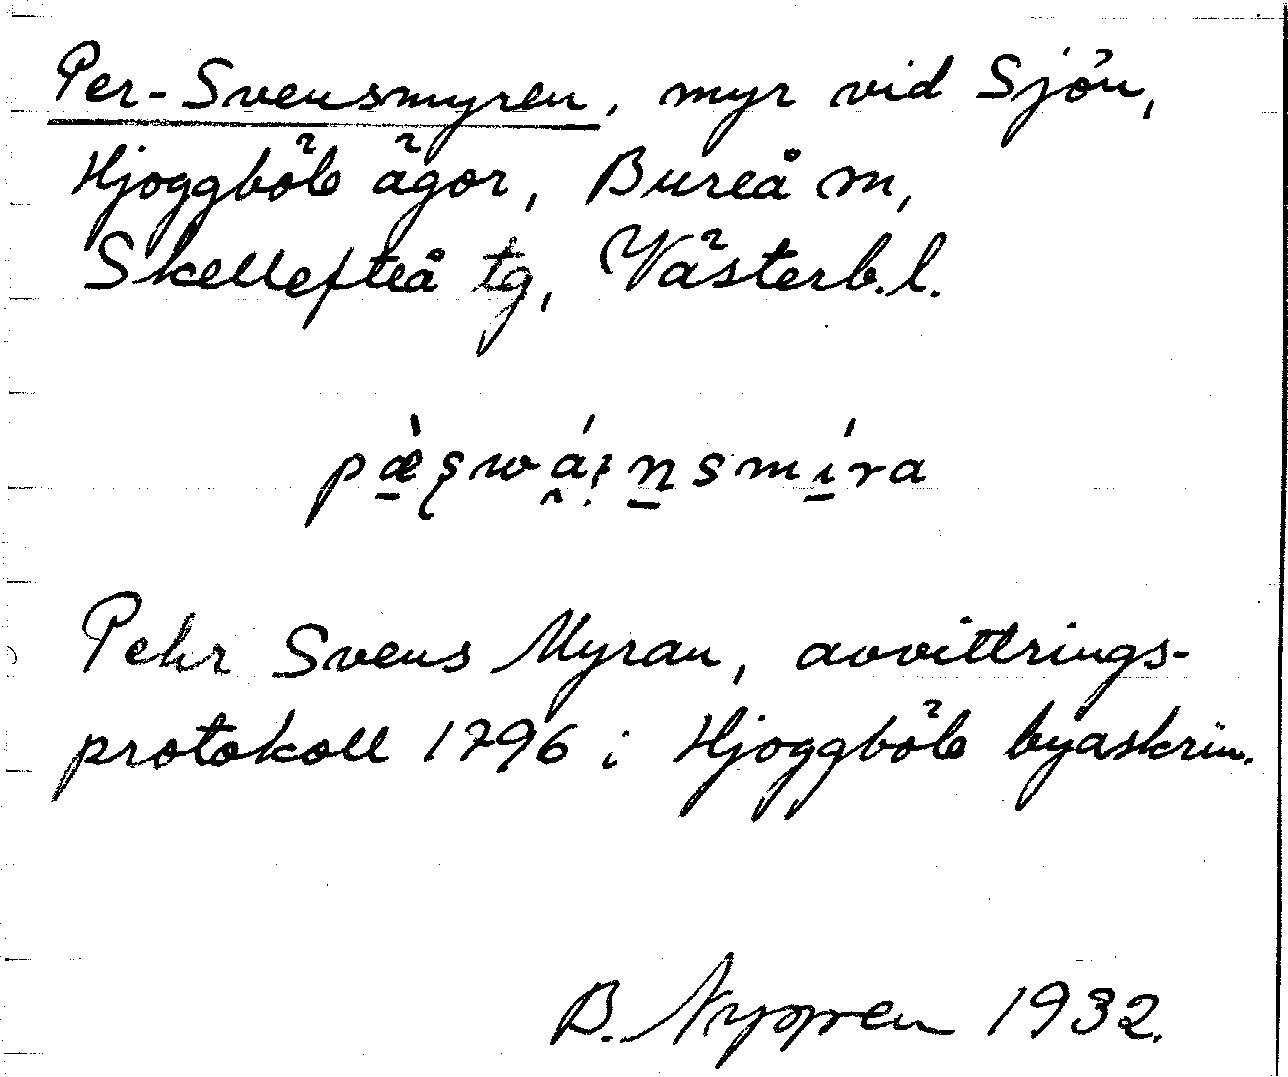 Per-Svensmyren, myr vid Sjön,
Hjoggböle ägor, Bureå sn,
Skellefteå tg, Västerb.l.
Pehr Svens Myran, avvittrings-
protokoll 1796 i Hjoggböle byaskrin.
B. 1932.